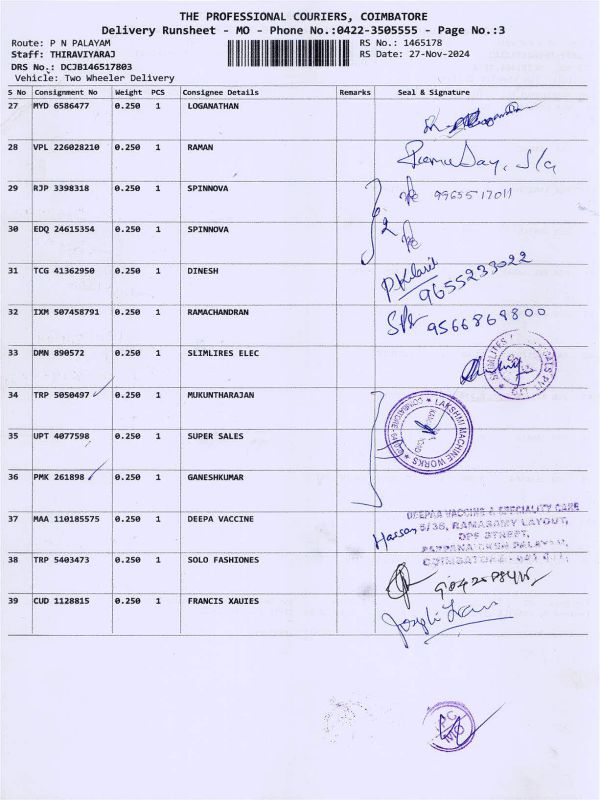 THE PROFESSIONAL COURIERS, COIMBATORE
Delivery Runsheet - MO - Phone No.:0422-3505555 - Page No.:3
Route: P N PALAYAM RS No.: 1465178
Staff: THIRAVIYARAJ RS Date: 27-Nov-2024
DRS No.: DCJB146517803
Vehicle: Two Wheeler Delivery
S No Consignment No Weight PCS Consignee Details Remarks Seal & Signature
27 MYD 6586477 0.250 1 LOGANATHAN
28 VPL 226028210 0.250 1 RAMAN
29 RJP 3398318 0.250 1 SPINNOVA 9965517011
30 EDQ 24615354 0.250 1 SPINNOVA 2
31 TCG 41362950 0.250 1 DINESH 9655233022
32 IXM 507458791 0.250 1 RAMACHANDRAN 9566869800
33 DMN 890572 0.250 1 SLIMLIRES ELEC
34 TRP 5050497 0.250 1 MUKUNTHARAJAN
LAKSHMI MACHINE WORKS
35 UPT 4077598 0.250 1 SUPER SALES
36 PMK 261898 0.250 1 GANESHKUMAR
37 MAA 110185575 0.250 1 DEEPA VACCINE Hassan
DEEPAA VACCINE & SPECIALITY CARE
5/36, RAMASAMY LAYOUT,
DPF STREET,
38 TRP 5403473 0.250 1 SOLO FASHIONES
39 CUD 1128815 0.250 1 FRANCIS XAUIES